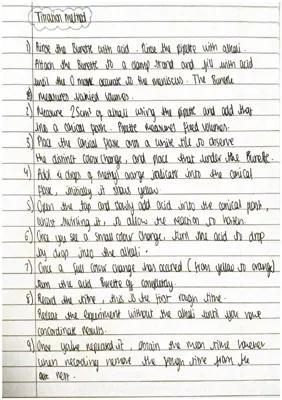 Titration method
1) Rinse the Burette with acid. Rinse the pipette with alkali.
Attach the Burette to a clamp stand and fill with acid
until the 0 mark at the meniscus. The Burette
measures varied volumes.
2) Measure 25cm³ of alkali using the pipette and add that
into a conical flask. Pipette measures fixed volumes.
3) Place the conical flask onto a white tile to observe
the distinct colour change, and place that under the Burette.
4) Add 4 drops of methyl orange indicator into the conical
flask, initially it shows yellow.
5) Open the tap and slowly add acid into the conical
whilst swirling it, to allow the reaction to
6) Once you see a small colour change, turn the acid to drop
by drop into the alkali.
7) Once a full colour change has occured (from yellow to orange)
turn the acid Burette off completely.
8) Record the titre, this is the first rough titre.
Repeat the experiment without the alkali until you have
concordant results.
9) Once you've repeated it, obtain the mean titre however
when recording remove the rough titre from the
rest.